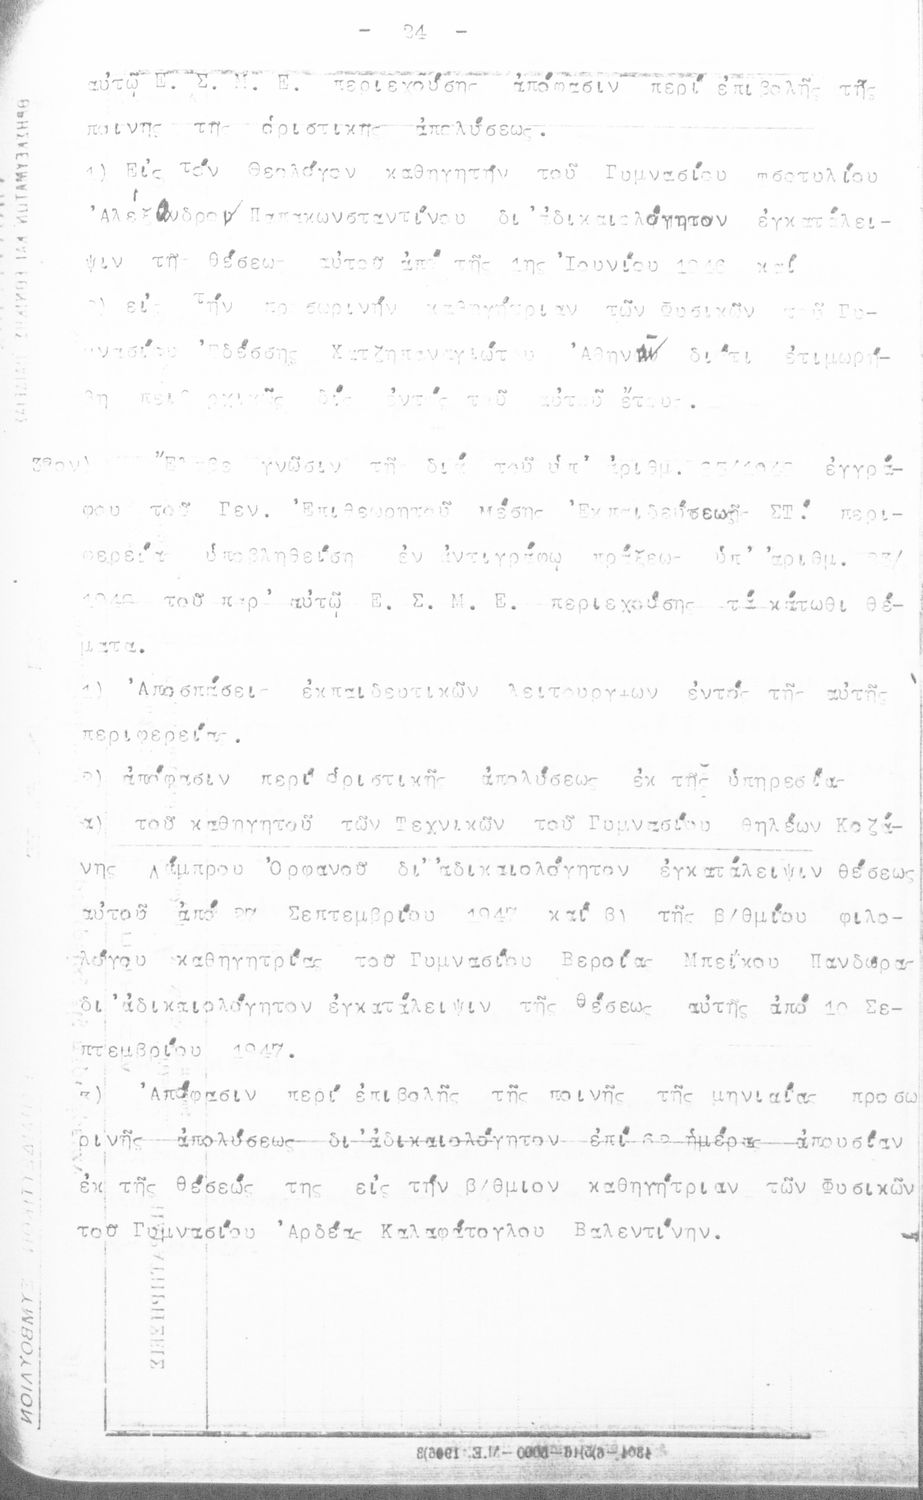 - 34 -
αὐτῷ Ε. Σ. Μ. Ε. περιεχούσης ἀπόφασιν περί ἐπιβολῆς τῆς
ποινῆς τῆς ὁριστικῆς ἀπολύσεως.
1) Εἰς τόν Θεολόγον καθηγητήν τοῦ Γυμνασίου
Ἀλέξανδρον Παπακωνσταντίνου δι' ἀδικαιολόγητον ἐγκατάλει-
ψιν τῆς θέσεως αὐτοῦ ἀπό τῆς 1ης Ἰουνίου 1946 καί
2) εἰς τήν προσωρινήν καθηγήτριαν τῶν Φυσικῶν τοῦ Γυ-
μνασίου Ἐδέσσης Χατζηπαναγιώτου Ἀθηνᾶν διότι ἐτιμωρή-
θη πειθαρχικῶς δίς ἐντός τοῦ αὐτοῦ ἔτους.
Ἔλαβε γνῶσιν τῆς διά τοῦ ὑπ' ἀριθμ. ἐγγρά-
φου τοῦ Γεν. Ἐπιθεωρητοῦ Μέσης Ἐκπαιδεύσεως ΣΤ΄ περι-
φερείας ὑποβληθείσης ἐν ἀντιγράφῳ πράξεως ὑπ' ἀριθμ.
1948 τοῦ παρ' αὐτῷ Ε. Σ. Μ. Ε. περιεχούσης τά κάτωθι θέ-
ματα.
1) Ἀποσπάσεις ἐκπαιδευτικῶν λειτουργῶν ἐντός τῆς αὐτῆς
περιφερείας.
2) ἀπόφασιν περί ὁριστικῆς ἀπολύσεως ἐκ τῆς ὑπηρεσίας
α) τοῦ καθηγητοῦ τῶν Τεχνικῶν τοῦ Γυμνασίου θηλέων Κοζά-
νης Λάμπρου Ὀρφανοῦ δι' ἀδικαιολόγητον ἐγκατάλειψιν θέσεως
αὐτοῦ ἀπό 27 Σεπτεμβρίου 1947 καί β) τῆς β/θμίου φιλο-
λόγου καθηγητρίας τοῦ Γυμνασίου Βεροίας Μπεΐκου Πανδώρας
δι' ἀδικαιολόγητον ἐγκατάλειψιν τῆς θέσεως αὐτῆς ἀπό 10 Σε-
πτεμβρίου 1947.
3) Ἀπόφασιν περί ἐπιβολῆς τῆς ποινῆς τῆς μηνιαίας προσω
ρινῆς ἀπολύσεως δι' ἀδικαιολόγητον ἐπί ἡμέρας ἀπουσίαν
ἐκ τῆς θέσεώς της εἰς τήν β/θμιον καθηγήτριαν τῶν Φυσικῶν
τοῦ Γυμνασίου Ἀρδέας Καλαφάτογλου Βαλεντίνην.